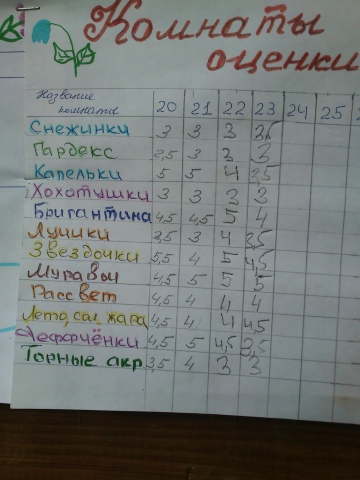 Комнаты
оценки
Название
комнаты 20 21 22 23 24 25
Снежинки 3 3 3 3,5
Гардекс 2,5 3 3 3
Капельки 5 5 4 3,5
Хохотушки 3 3 3 3
Бригантина 4,5 4,5 5 4
Лучики 3,5 3 4 3,5
Звездочки 5,5 4 5 4,5
Муравьи 4,5 5 5 5
Рассвет 4,5 4 4 4
Лето, сол, жара 4,5 4 4 4,5
Чефирчёнки 4,5 5 4,5 3,5
Торные акр 3,5 4 3 3